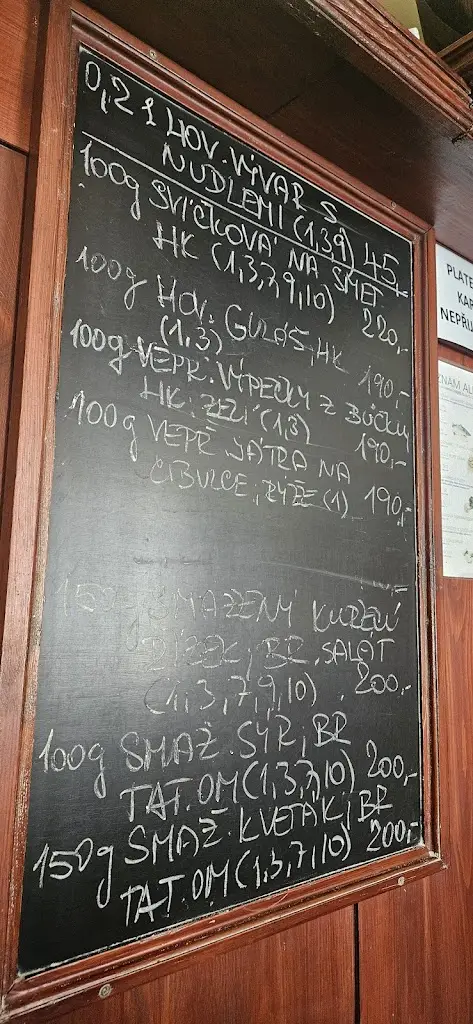 0,2 l HOV. VÝVAR S
NUDLEMI (1,3,9) 45,-
100g SVÍČKOVÁ NA SMET
HK (1,3,7,9,10) 220,-
100g HOV. GULÁŠ, HK
(1,3) 190,-
100g VEPŘ. VÝPEČKY Z BŮČKU
HK. ZELÍ (1,3) 190,-
100g VEPŘ JÁTRA NA
CIBULCE, RÝŽE (1) 190,-
150g SMAŽENÝ KUŘECÍ
ŘÍZEK, BR. SALÁT
(1,3,7,9,10) 200,-
100g SMAŽ. SÝR, BR
TAT. OM (1,3,7,10) 200,-
150g SMAŽ. KVĚTÁK, BR
TAT. OM (1,3,7,10) 200,-
PLATE
KAR
NEPŘI
ZNAM AL